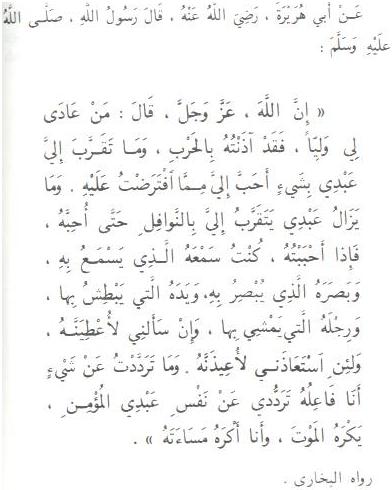 عَنْ أَبي هُرَيْرَةَ ، رَضِيَ اللَّهُ عَنْهُ ، قَالَ رَسُولُ اللَّهِ ، صَلَّى اللَّهُ
عَلَيْهِ وَسَلَّمَ :
« إِنَّ اللَّهَ ، عَزَّ وَجَلَّ ، قَالَ : مَنْ عَادَى
لِي وَلِيّاً ، فَقَدْ آذَنْتُهُ بِالْحَرْبِ ، وَمَا تَقَرَّبَ إِليَّ
عَبْدِي بِشَيْءٍ أَحَبَّ إِليَّ مِمَّا افْتَرَضْتُ عَلَيْهِ . وَمَا
يَزَالُ عَبْدِي يَتَقَرَّبُ إِليَّ بِالنَّوافِلِ حَتَّى أُحِبَّهُ ،
فَإِذا أَحْبَبْتُهُ ، كُنْتُ سَمْعَهُ الَّذِي يَسْمَعُ بِهِ ،
وَبَصَرَهُ الَّذِي يُبْصِرُ بِهِ، وَيَدَهُ الَّتي يَبْطِشُ بِها ،
وَرِجْلَهُ الَّتي يَمْشِي بِها ، وَإِنْ سَأَلَنِي لأُعْطِيَنَّهُ ،
وَلَئِنِ اسْتَعَاذَنِي لأُعِيذَنَّهُ . وَمَا تَرَدَّدْتُ عَنْ شَيْءٍ
أَنَا فَاعِلُهُ تَرَدُّدِي عَنْ نَفْسِ عَبْدِي المُؤْمِنِ ،
يَكْرَهُ المَوْتَ ، وَأَنا أَكْرَهُ مَسَاءَتَهُ » .
رواه البخاري .